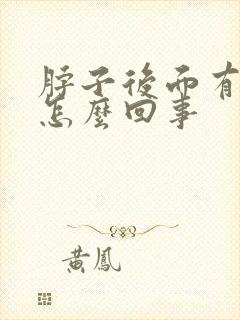 脖子後面有
怎麼回事
黃鳳